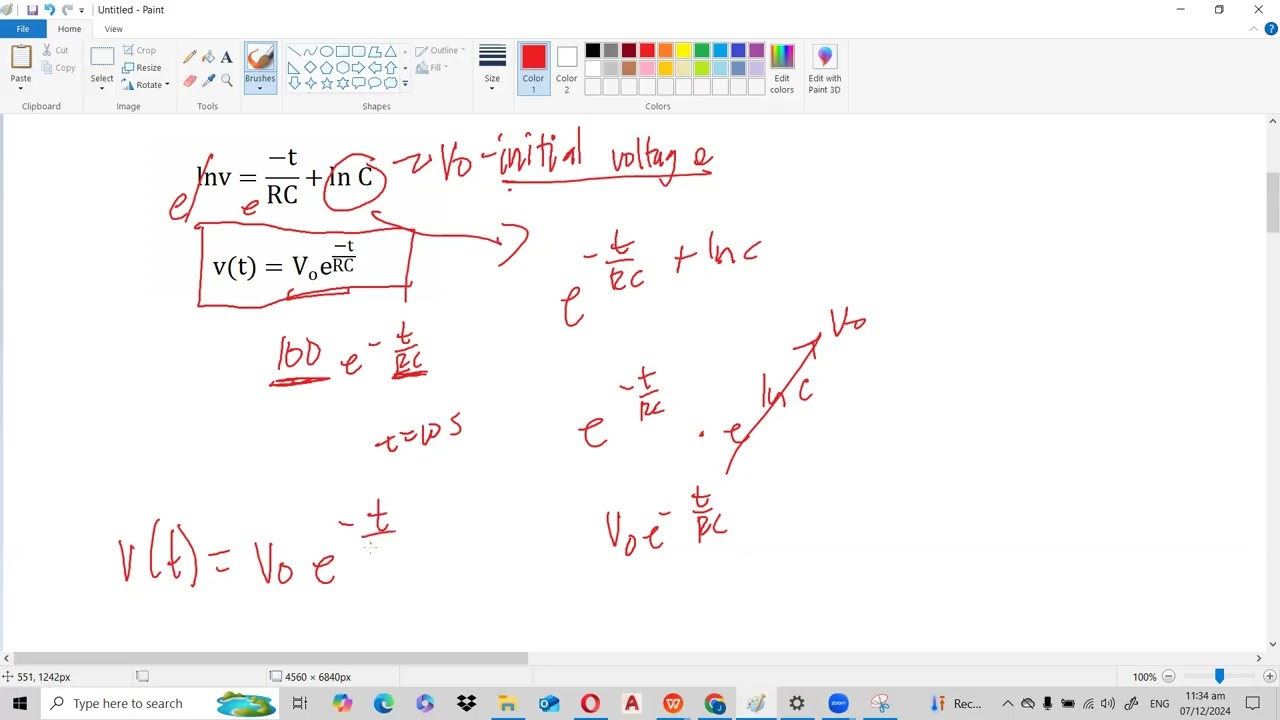 Untitled - Paint
File Home View
Paste
Cut
Copy
Clipboard
Select
Crop
Resize
Rotate
Image
Tools
Brushes
Outline
Fill
Shapes
Size
Color 1
Color 2
Edit colors
Colors
Edit with Paint 3D
lnv = -t/RC + ln C → V0 - initial voltage
e e
v(t) = Voe^(-t/RC)
e^(-t/RC + ln C)
100 e^(-t/RC)
V0
e^(-t/RC) · e^(ln C)
t=10 s
V0 e^(-t/RC)
v(t) = V0 e^(-t/
551, 1242px
4560 × 6840px
100%
Type here to search
Rec...
ENG
11:34 am
07/12/2024